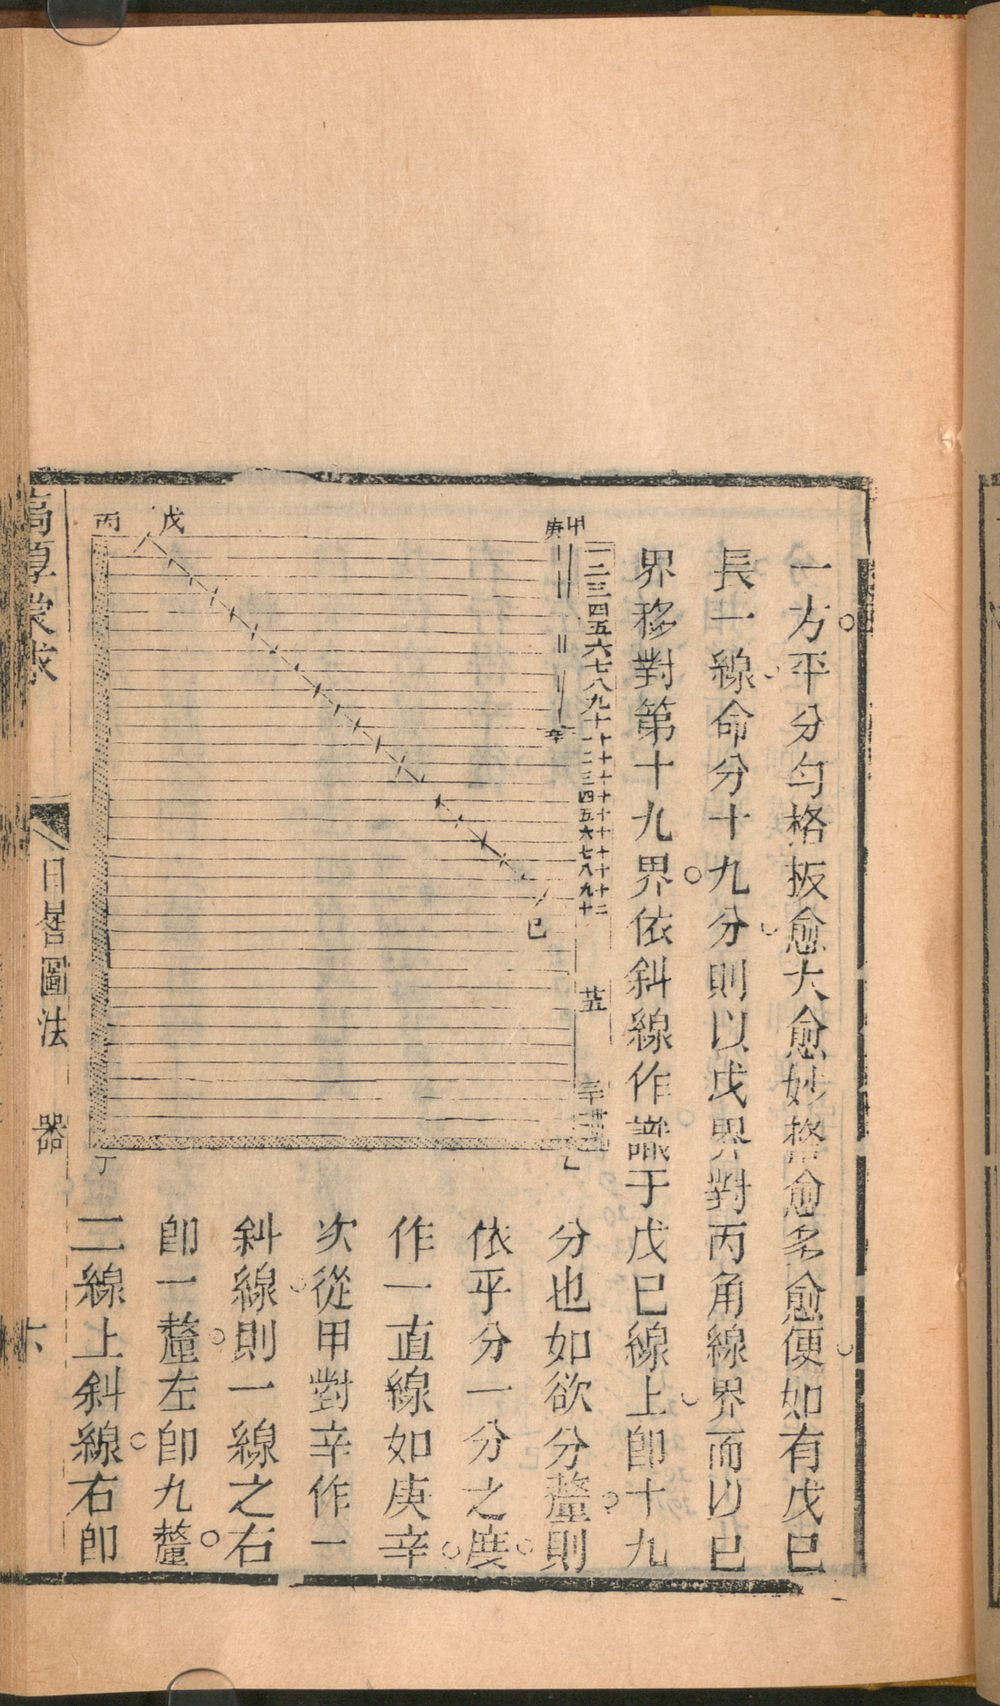 一方平分勻格板愈大愈妙格愈多愈便如有戊巳
長一線命分十九分則以戊界對丙角線界而以巳
界移對第十九界依斜線作識于戊巳線上卽十九
分也如欲分釐則
依平分一分之度
作一直線如庚辛
次從甲對辛作一
斜線則一線之右
卽一釐左卽九釐
二線上斜線右卽
甲
庚
一二三四五六七八九十
十一
十二
十三
十四
十五
十六
十七
十八
十九
二十
辛
戊
丙
巳
乙
丁
高厚蒙求
日晷圖法
器
六